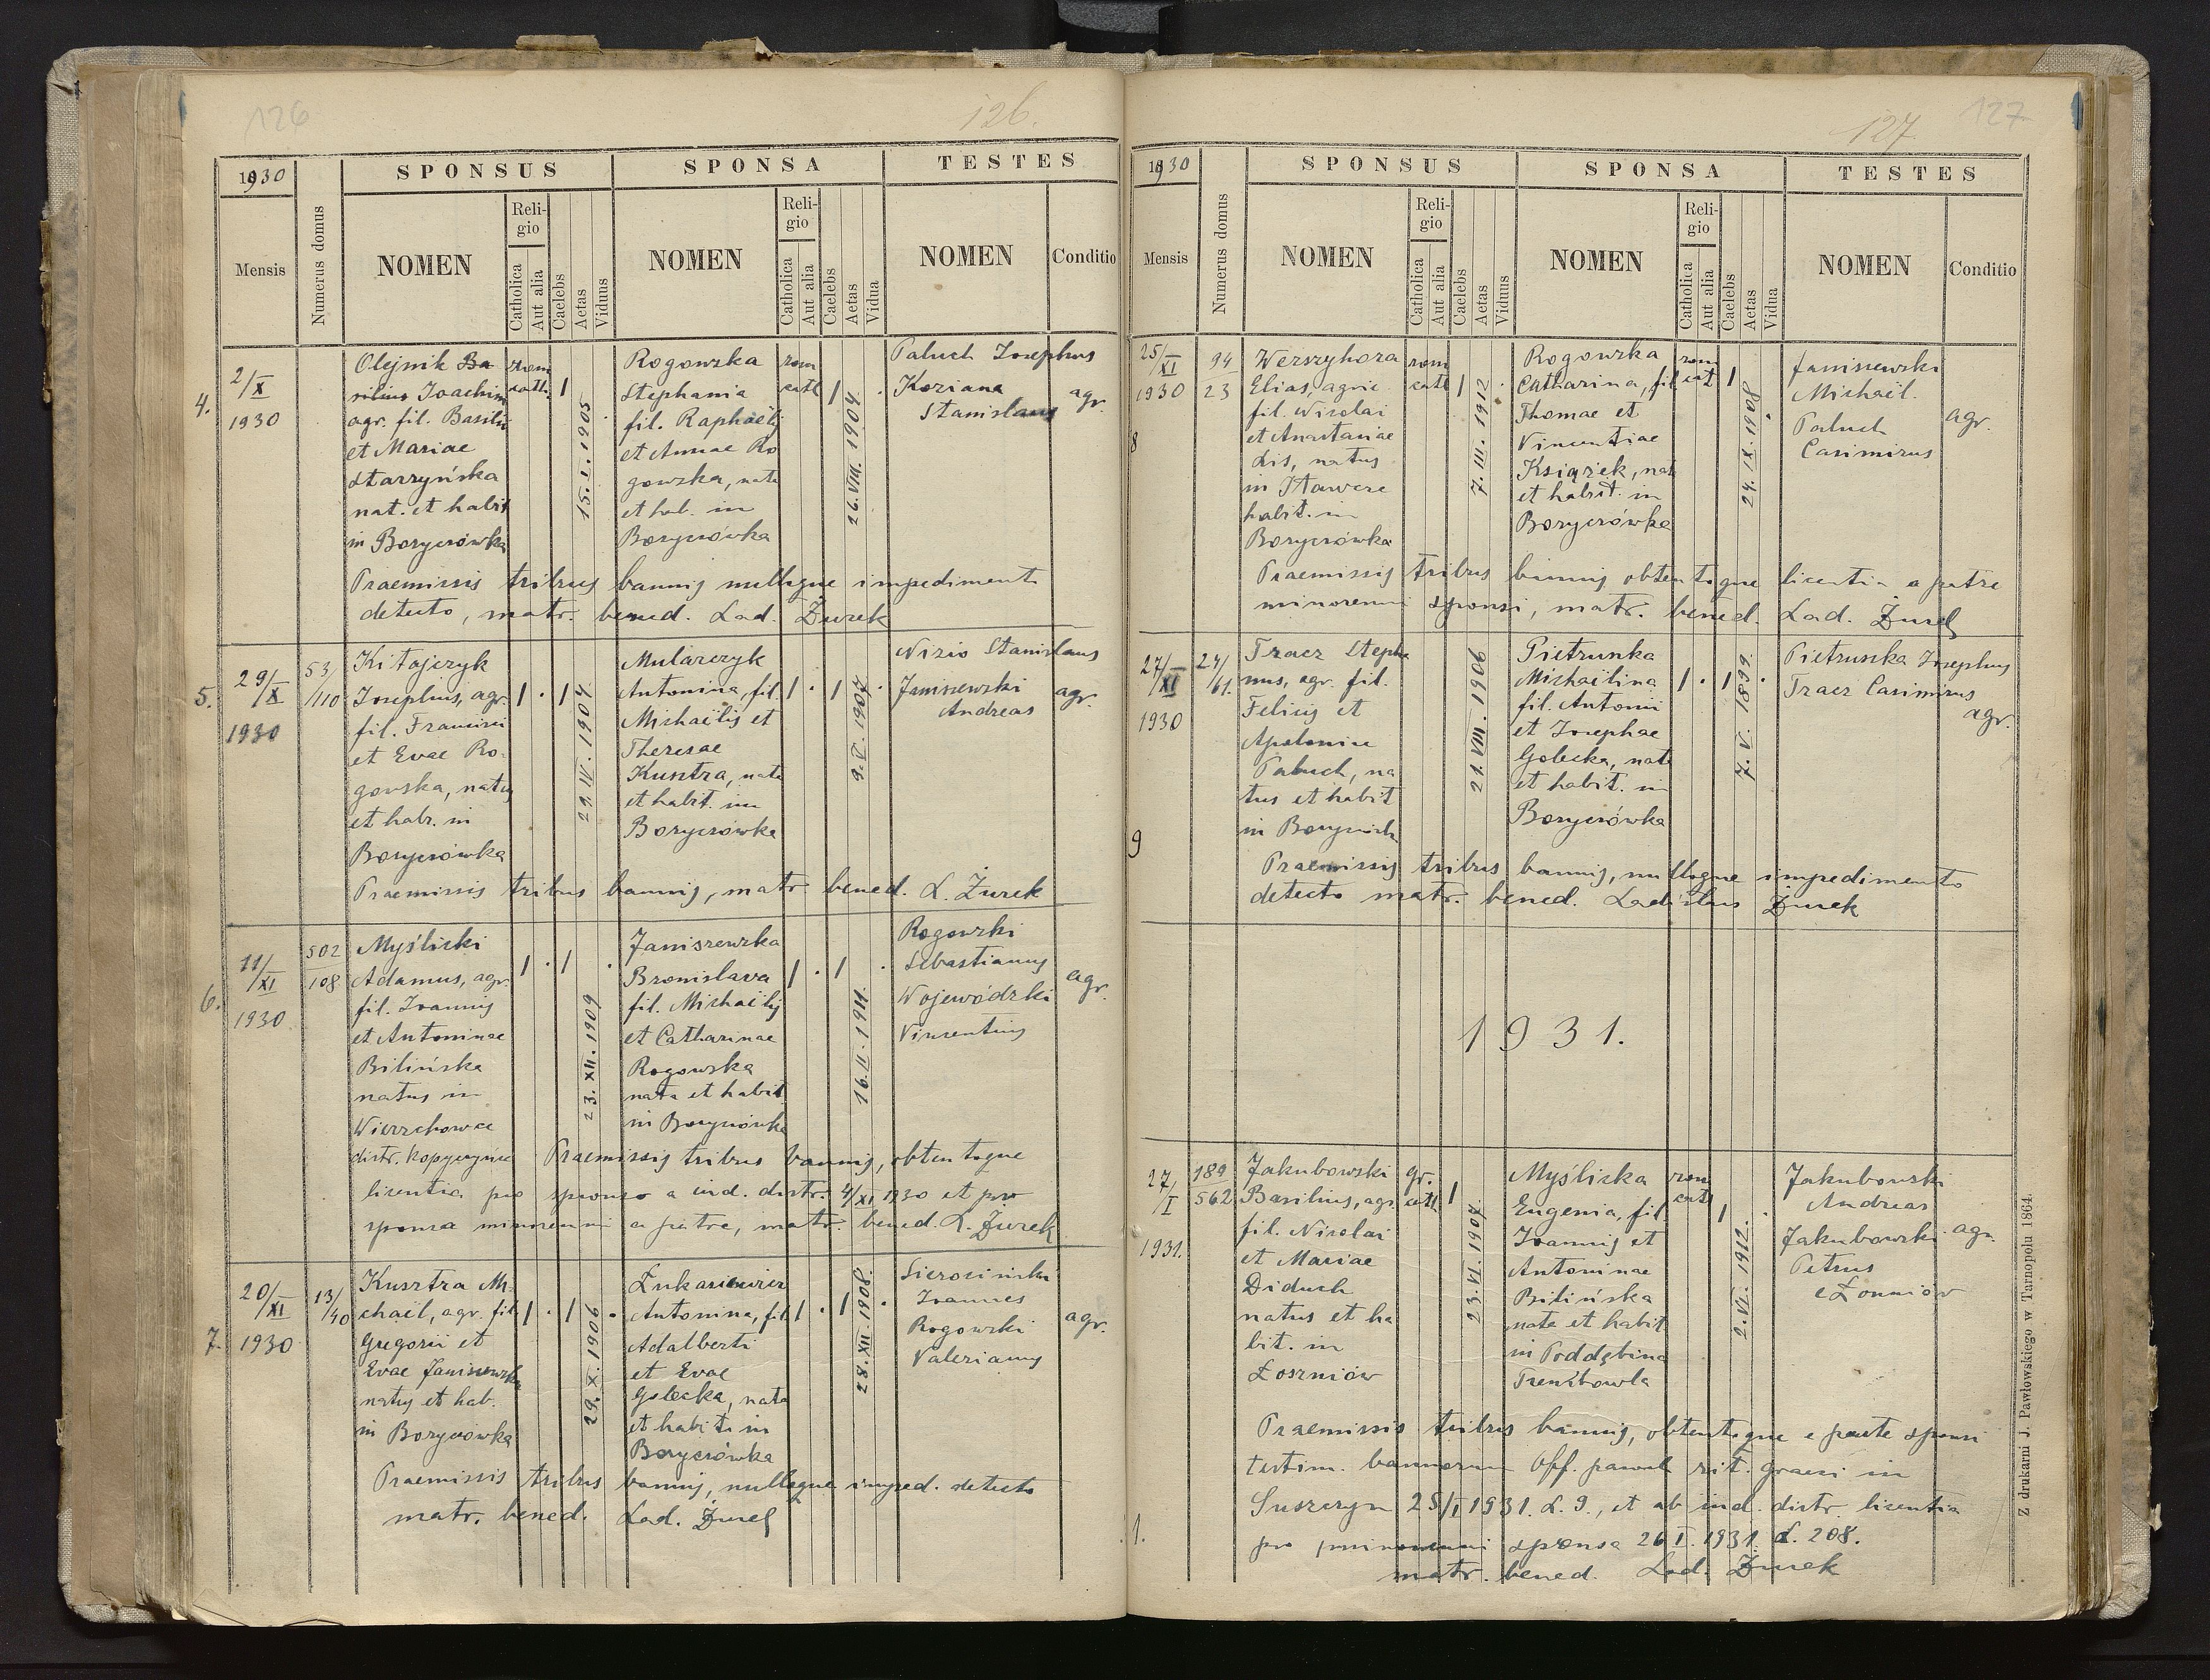 126
126.
1930
SPONSUS
SPONSA
TESTES
Mensis
Numerus domus
NOMEN
Religio
Catholica
Aut alia
Caelebs
Aetas
Viduus
NOMEN
Religio
Catholica
Aut alia
Caelebs
Aetas
Vidua
NOMEN
Conditio
4.
2/X
1930
Olejnik Ba
silius Joachim
agr. fil. Basilii
et Mariae
Starzyńska
nat. et habit
in Borycrówka
rom
cath.
1
15. I. 1905
Rogowska
Stephania
fil. Raphaelis
et Annae Ro
gowska, nata
et hab. in
Borycrówka
rom
cath
1
26. VIII. 1904.
Paluch Josephus
Koziana
Stanislaus
agr.
Praemissis tribus bannis nulloque impedimento
detecto, matr. bened. Lad. Żurek
5.
29/X
1930
53
/110
Kitajczyk
Josephus, agr.
fil. Francisci
et Evae Ro-
gowska, natus
et habr. in
Borycrówka
1 . 1
29. IV. 1904
Mularczyk
Antonina, fil
Michaëlis et
Theresae
Kusztra, nata
et habit. in
Borycrówka
1 . 1
9. V. 1907
Nizio Stanislaus
Janiszewski
Andreas
agr.
Praemissis tribus bannis, matr. bened. L. Żurek
6.
11/XI
1930
502
108
Myśliski
Adamus, agr.
fil. Joannis
et Antoninae
Bilińska
natus in
Wierzchowce
distr. Kopyczynce
1 . 1
23. XII. 1909
Janiszewska
Bronislava
fil. Michaëlis
et Catharinae
Rogowska
nata et habit
in Borycrówka
1 . 1
16. II. 1911.
Rogowski
Sebastianus
Wojewódzki
Vincentius
agr.
Praemissis tribus bannis, obtentoque
licentia pro sponso a iud. distr. 4/XI 1930 et pro
sponsa minorenni a patre, matr. bened. L. Żurek
7.
20/XI
1930
13/
40
Kusztra Mi
chaël, agr. fil.
Gregorii et
Evae Janiszewska
natus et hab.
in Borycrówka
1 . 1
29. X. 1906
Łukasiewicz
Antonina, fil
Adalberti
et Evae
Golecka, nata
et habit. in
Borycrówka
1 . 1
28. XII. 1908.
Sierociński
Joannes
Rogowski
Valerianus
agr.
Praemissis tribus bannis, nulloque imped. detecto
matr. bened. Lad. Żurek
127
127
1930
SPONSUS
SPONSA
TESTES
Mensis
Numerus domus
NOMEN
Religio
Catholica
Aut alia
Caelebs
Aetas
Viduus
NOMEN
Religio
Catholica
Aut alia
Caelebs
Aetas
Vidua
NOMEN
Conditio
8
25/XI
1930
94
23
Werszyhora
Elias, agric.
fil. Nicolai
et Anastasiae
Lis, natus
habit. in
Borycrówka
rom
cath
1
7. III. 1912
Rogowska
Catharina, fil
Thomae et
Vincentiae
Książek, nat
et habit. in
Borycrówka
rom
cat
1
24. IX. 1908
Janiszewski
Michaël.
Paluch
Casimirus
agr.
Praemissis tribus bannis obtentoque licentia a patre
minorenni sponsi, matr. bened. Lad. Żurek
9
27/XI
1930
24/
61.
Tracz Stepha
nus, agr. fil.
Felicis et
Apoloniae
Paluch, na
tus et habit
in Borycrówka
21. VIII. 1906
Pietruska
Michaëlina
fil. Antonii
et Josephae
Golecka, nata
et habit. in
Borycrówka
1 . 1
7. V. 1899
Pietruska Josephus
Tracz Casimirus
agr.
Praemissis tribus bannis, nulloque impedimento
detecto matr. bened. Ladislaus Żurek
1931.
1.
27/I
1931.
189
562
Jakubowski
Basilius, agr.
fil. Nicolai
et Mariae
Diduch
natus et ha
bit. in
Łoszniów
gr.
cath.
1
23. VI. 1907.
Myśliska
Eugenia, fil.
Joannis et
Antoninae
Bilińska
nata et habit
in Poddębina
Trembowla
rom
cath
1
2. VI. 1912.
Jakubowski
Andreas
Jakubowski
Petrus
e Łoszniów
agr.
Praemissis tribus bannis, obtentoque e parte sponsi
testim. bannorum Off. paroch rit. graeci in
Suszczyn 25/I 1931. L. 9., et ab iud. distr. licentia
pro minorenni sponsa 26 I. 1931. L. 208.
matr. bened. Lad. Żurek
Z drukarni J. Pawłowskiego w Tarnopolu 1864.